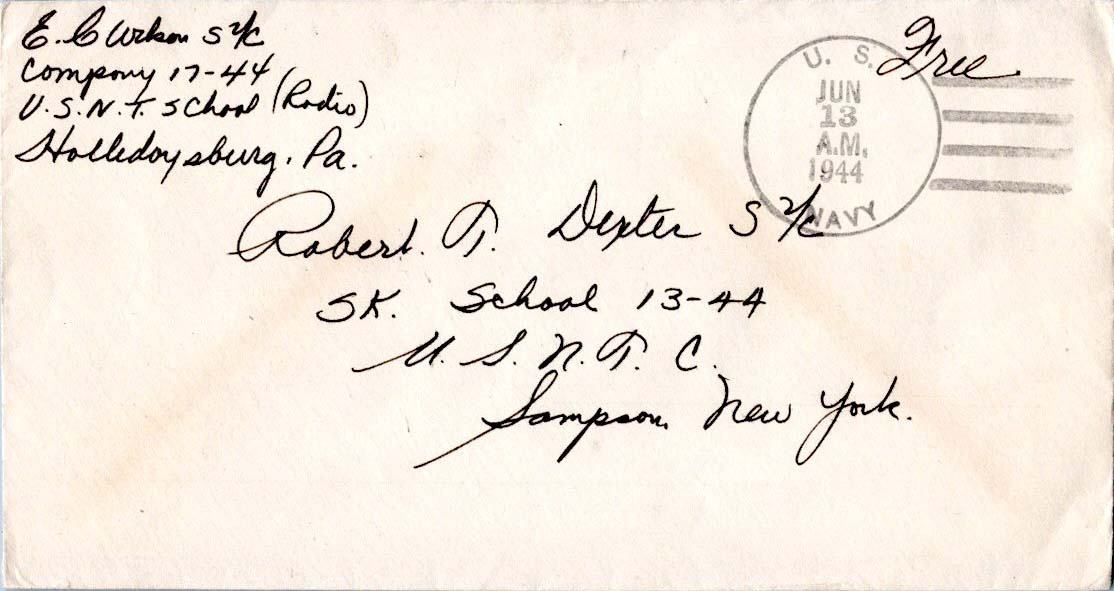 E. C. Wilson S 2/c
Company 17-44
U.S.N.T. School (Radio)
Hollidaysburg, Pa.
Free
U. S.
JUN
13
A.M.
1944
NAVY
Robert. T. Dexter S 2/c
SK. School 13-44
U. S. N. T. C.
Sampson, New York.